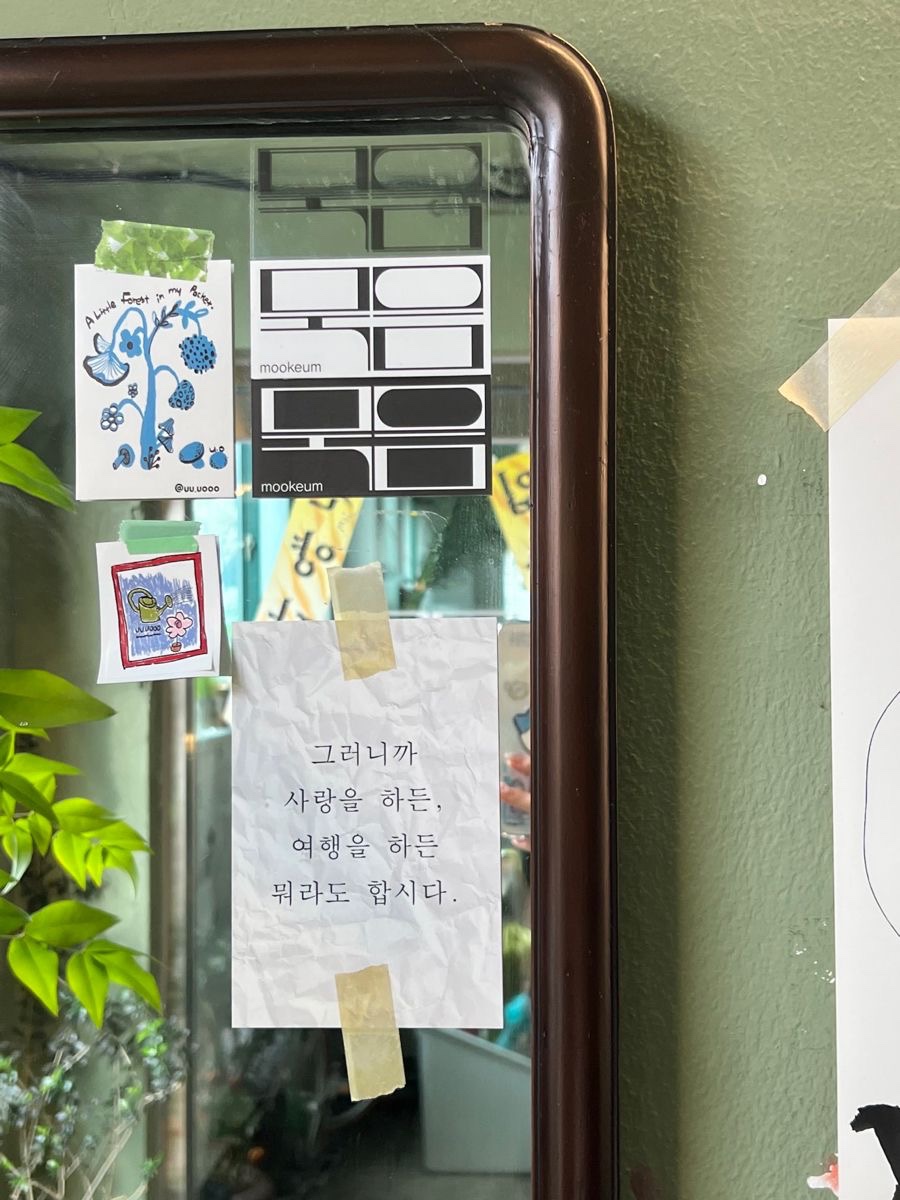 A Little Forest in my Pocket.
@uu.uooo
mookeum
mookeum
그러니까
사랑을 하든,
여행을 하든
뭐라도 합시다.